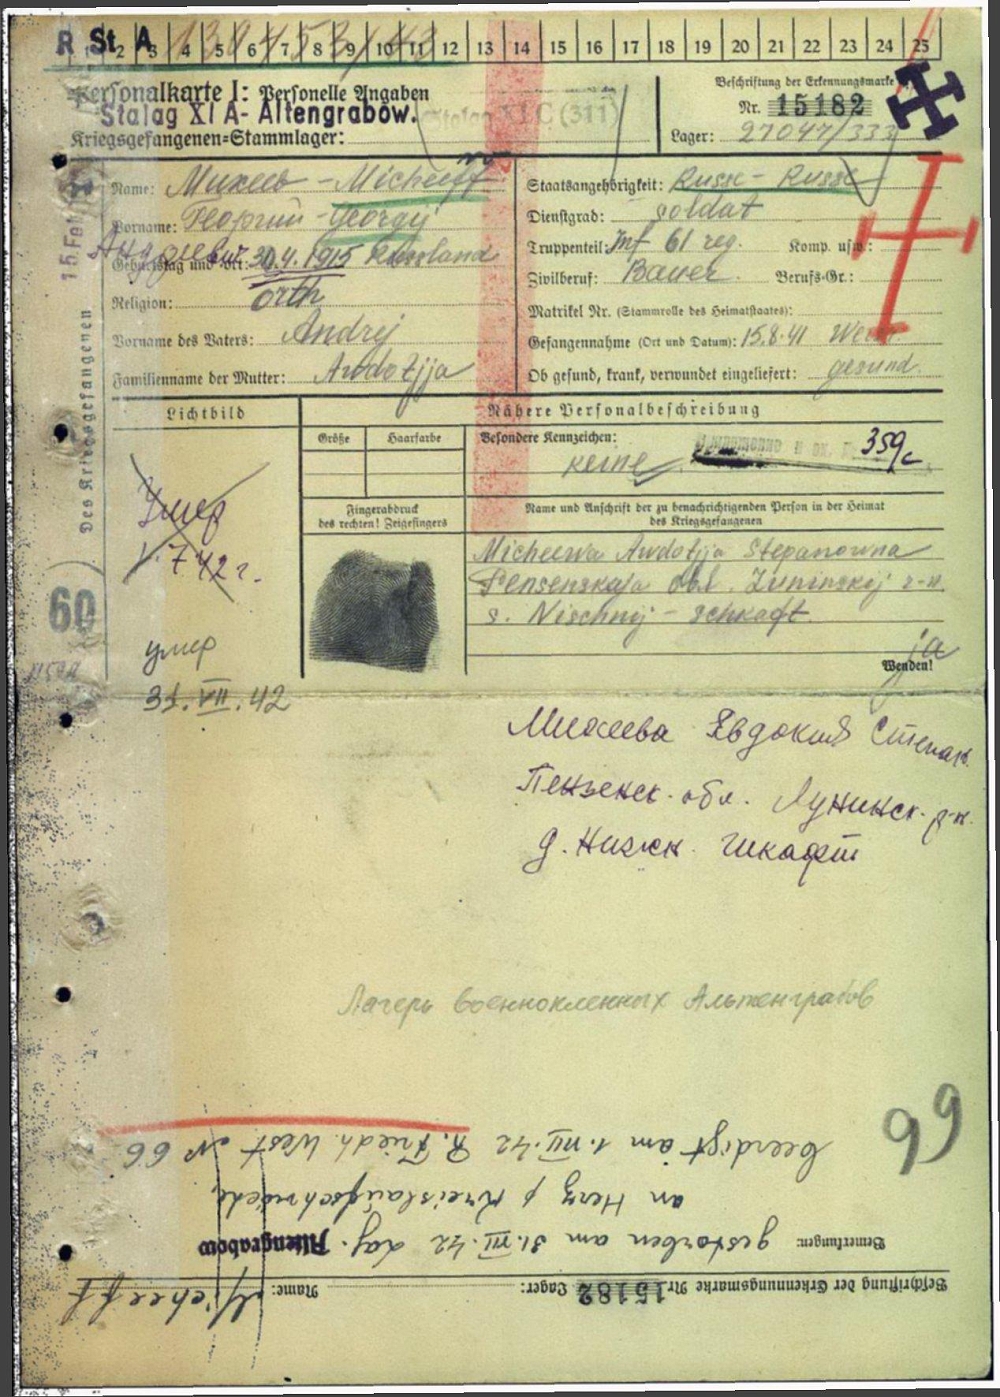 R St. A
1 2 3 4 5 6 7 8 9 10 11 12 13 14 15 16 17 18 19 20 21 22 23 24 25
Personalkarte I: Personelle Angaben
Stalag XI A- Altengrabow.
Stalag XI C (311)
Kriegsgefangenen-Stammlager:
Beschriftung der Erkennungsmarke
Nr. 15182
Lager: 27047/333
Des Kriegsgefangenen
15. Feb.
Name: Михеев - Micheeff
Vorname: Георгий - Georgij
Андреевич
Geburtstag und -Ort: 30.4.1915 Russland
Religion: orth
Vorname des Vaters: Andrej
Familienname der Mutter: Awdotjja
Staatsangehörigkeit: Russe - Russe
Dienstgrad: soldat
Truppenteil: Inf 61 reg. Komp. usw.:
Zivilberuf: Bauer Berufs-Gr.:
Matrikel Nr. (Stammrolle des Heimatstaates):
Gefangennahme (Ort und Datum): 15.8.41
Ob gesund, krank, verwundet eingeliefert: gesund
Lichtbild
Nähere Personalbeschreibung
Größe
Haarfarbe
Besondere Kennzeichen:
keine
359с
Fingerabdruck
des rechten! Zeigefingers
Name und Anschrift der zu benachrichtigenden Person in der Heimat
des Kriegsgefangenen
Micheewa Awdotjja Stepanowna
Pensenskaja obl. Luninskij r-n.
s. Nischnij - Schkaft
ja
Wenden!
Умер
1.7 42 г.
60
умер
31.VII.42
Михеева Евдокия Степан.
Пензенск. обл. Лунинск. р-н.
д. Нижн. Шкафт
Лагерь военнопленных Альтенграбов
66
Beschriftung der Erkennungsmarke Nr. 15182 Lager:
Name: Micheeff
Bemerkungen: gestorben am 31.VII.42 Lag. Altengrabow
an Herz & Kreislaufschwäche
beerdigt am 1.VIII.42 R. Friedh. West № 66